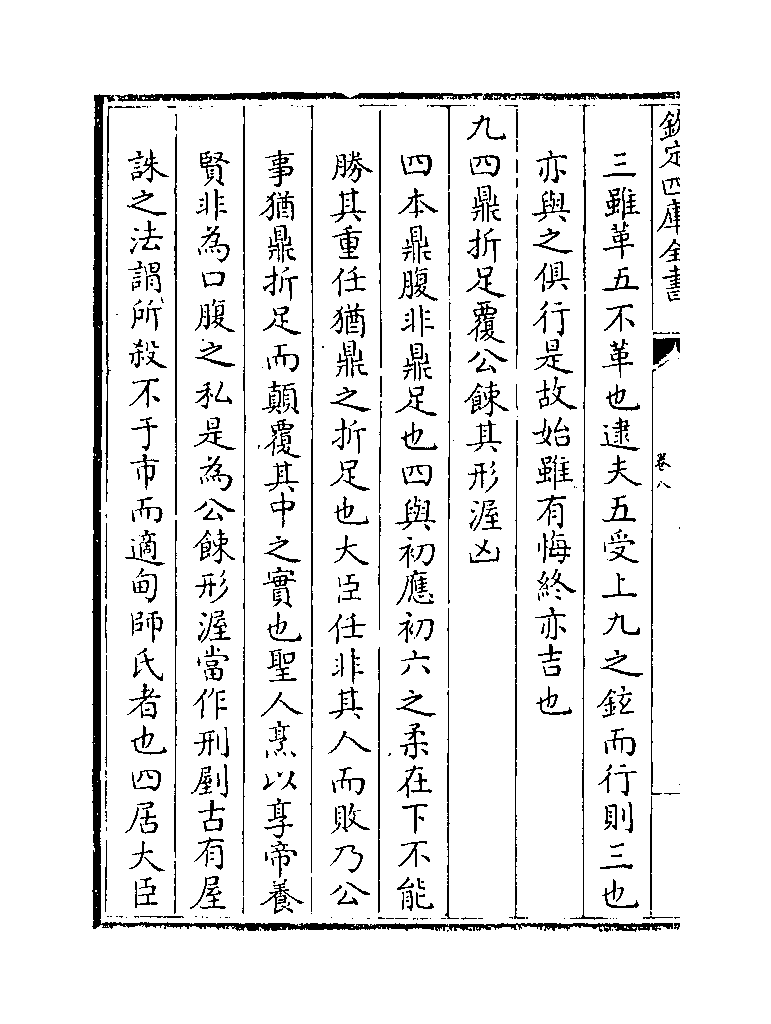 欽定四庫全書
卷八
三雖革五不革也逮夫五受上九之鉉而行則三也
亦與之俱行是故始雖有悔終亦吉也
九四鼎折足覆公餗其形渥凶
四本鼎腹非鼎足也四與初應初六之柔在下不能
勝其重任猶鼎之折足也大臣任非其人而敗乃公
事猶鼎折足而顛覆其中之實也聖人烹以享帝養
賢非為口腹之私是為公餗形渥當作刑剭古有屋
誅之法謂所殺不于市而適甸師氏者也四居大臣